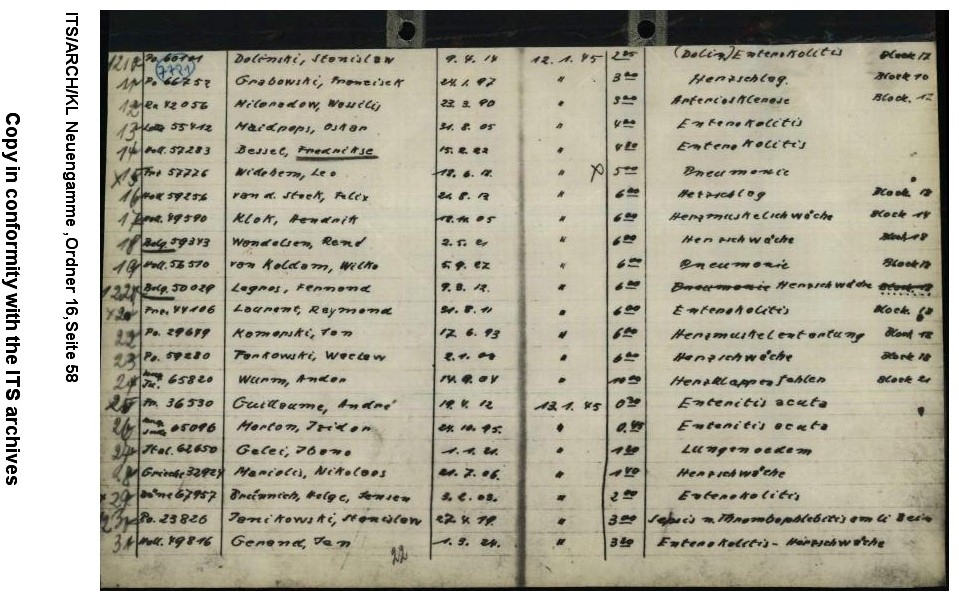 ITS/ARCH/KL Neuengamme ,Ordner 16,Seite 58
Copy in conformity with the ITS archives
Po. Dolinski, Stanislaw 9. 4. 14 12. 1. 45 (Dolin) Enterokolitis Block 17
7721
Po 66752 Grabowski, Franzisek 24. 1. 97 " 3 00 Herzschlag. Block 10
12 Ru 42056 Miloradow, Wassilis 23. 3. 90 " Arteriosklerose Block.
13 55412 Maidrops, Oskar 31. 8. 05 " 4 00 Enterokolitis
14 Holl. 57283 Bessel, Fredrikse 15. 2. 22 " 4 20 Enterokolitis
x 15 57726 Widehem, Leo 18. 6. " x 5 00 Pneumonie
16 Holl 59256 van d. Stock, Felix 21. 8. 13 " 6 00 Herzschlag Block 18
17 Holl. 49590 Klok, Hendrik 05 " 6 00 Herzmuskelschwäche Block 14
18 Belg. 59343 Wendelsen, René 2. 5. 21 " 6 00 Herzschwäche Block 18
19 Holl. 56510 van Koldam, Wilko 5. 9. 22 " 6 00 Pneumonie Block
Belg. 50029 Legros, Fernand 9. 8. 12. " 6 00 Pneumonie Herzschwäche Block
Frz. 44106 Laurent, Raymond 31. 8. 11 " 6 00 Enterokolitis Block.
22 Po. 29689 Komorski, Jan 17. 6. 93 " 6 00 Herzmuskelentartung Block 18
23 Po. 59280 Tarkowski, Waclaw 2. 1. " 6 00 Herzschwäche Block 18
24 Ju. 65820 Wurm, Andor 14. 9. 04 " 10 00 Herzklappenfehler Block 21
25 Fr. 36530 Guillaume, André 19. 4. 12 13. 1. 45 Enteritis acuta
26 05096 Morton, Izidor 24. 10. 95. " 0.45 Enteritis acuta
Ital. 62650 Galei, 1. 1. 21. " Lungenoedem
Grieche 32924 Mariolis, Nikolaos 21. 7. 06. " 1 40 Herzschwäche
x 29 Däne 67957 Brünnich, Helge, Jensen 3. 2. 03. " 2 00 Enterokolitis
Po. 23826 Janikowski, Stanislaw 27. 4. 19. " 3 00 Sepsis n. Thrombophlebitis am li Bein
31 Holl. 49816 Gerand, Jan 1. 3. 24. " 3 20 Enterokolitis - Herzschwäche
22